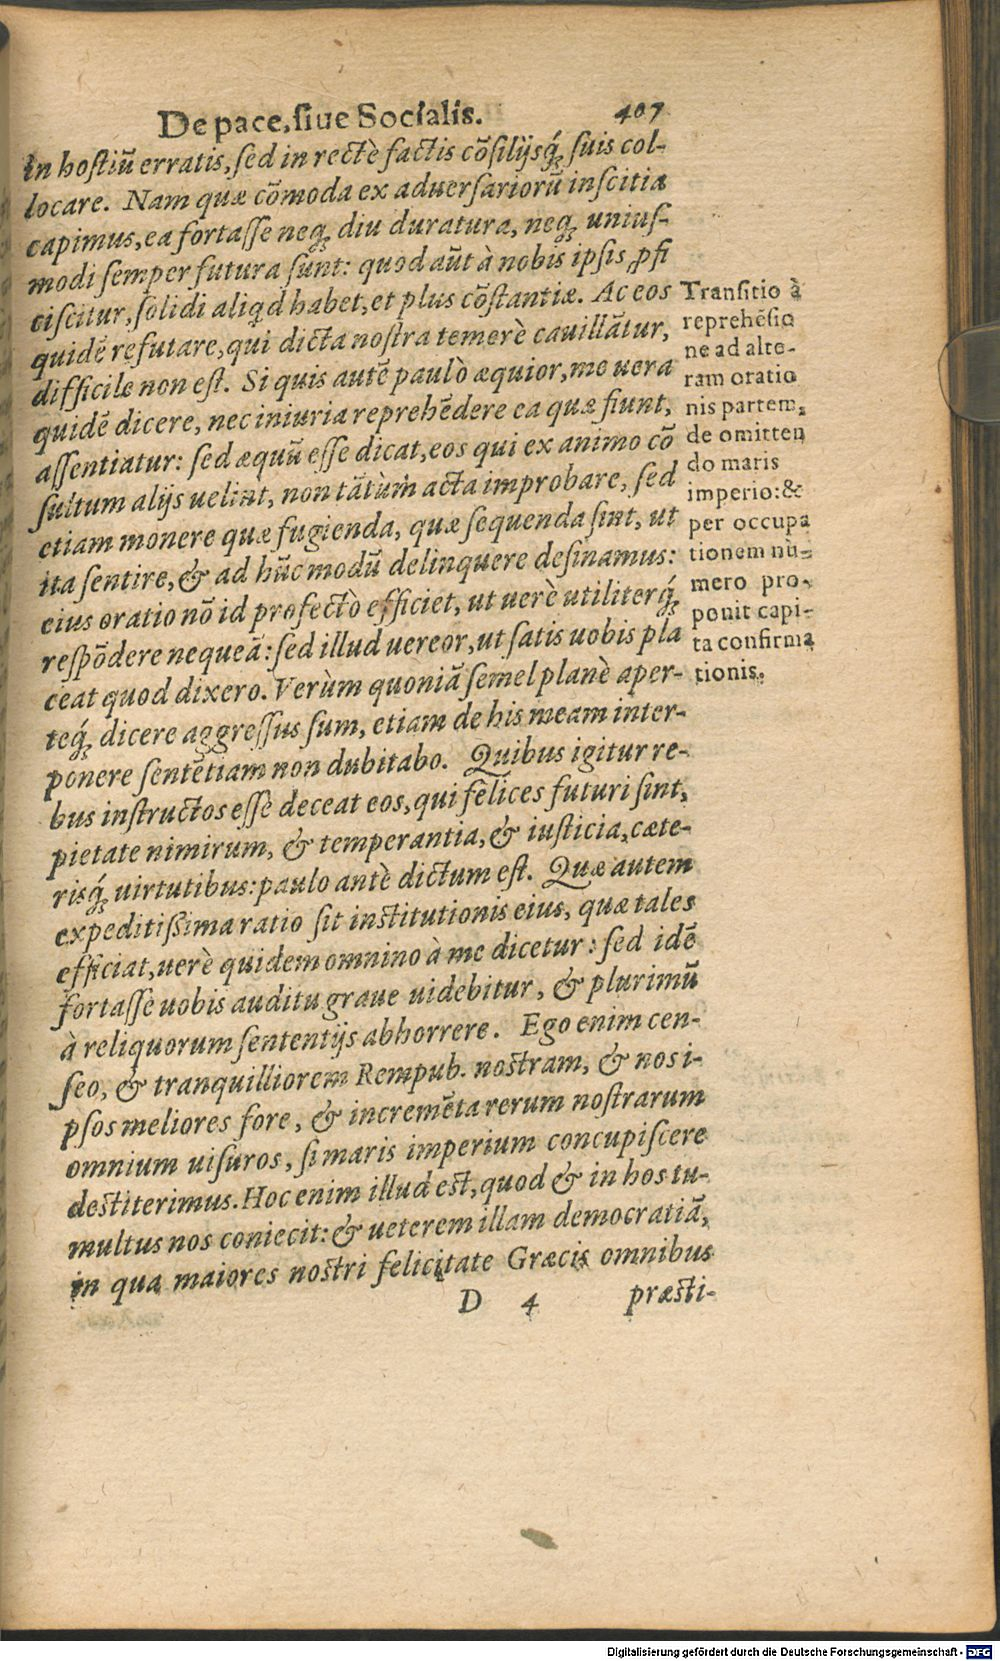 De pace, siue Socialis. 407
in hostiũ erratis, sed in rectè factis cõsilijsq́; suis col-
locare. Nam quæ cõmoda ex aduersariorũ inscitia
capimus, ea fortasse neq; diu duratura, neq; unius-
modi semper futura sunt: quod aũt à nobis ipsis ꝓfi
ciscitur, solidi aliqd habet, et plus cõstantiæ. Ac eos
quidẽ refutare, qui dicta nostra temerè cauillãtur,
difficile non est. Si quis autẽ paulò æquior, me uera
quidẽ dicere, nec iniuria reprehẽdere ea quæ fiunt,
assentiatur: sed æquũ esse dicat, eos qui ex animo cõ
sultum alijs uelint, non tãtùm acta improbare, sed
etiam monere quæ fugienda, quæ sequenda sint, ut
ita sentire, & ad hũc modũ delinquere desinamus:
eius oratio nõ id profectò efficiet, ut uerè utiliterq́;
respõdere nequeã: sed illud uereor, ut satis uobis pla
ceat quod dixero. Verùm quoniã semel planè aper-
teq́; dicere aggressus sum, etiam de his meam inter-
ponere sentẽtiam non dubitabo. Quibus igitur re-
bus instructos esse deceat eos, qui felices futuri sint,
pietate nimirum, & temperantia, & iusticia, cæte-
risq́; uirtutibus: paulo antè dictum est. Quæ autem
expeditissima ratio sit institutionis eius, quæ tales
efficiat, uerè quidem omnino à me dicetur: sed idẽ
fortasse uobis auditu graue uidebitur, & plurimũ
à reliquorum sententijs abhorrere. Ego enim cen-
seo, & tranquilliorem Rempub. nostram, & nos i-
psos meliores fore, & incremẽta rerum nostrarum
omnium uisuros, si maris imperium concupiscere
destiterimus. Hoc enim illud est, quod & in hos tu-
multus nos coniecit: & ueterem illam democratiã,
in qua maiores nostri felicitate Græcis omnibus
D 4 præsti-
Transitio à
reprehẽsio
ne ad alte-
ram oratio
nis partem,
de omitten
do maris
imperio: &
per occupa
tionem nu-
mero pro-
ponit capi-
ta confirma
tionis.
Digitalisierung gefördert durch die Deutsche Forschungsgemeinschaft - DFG